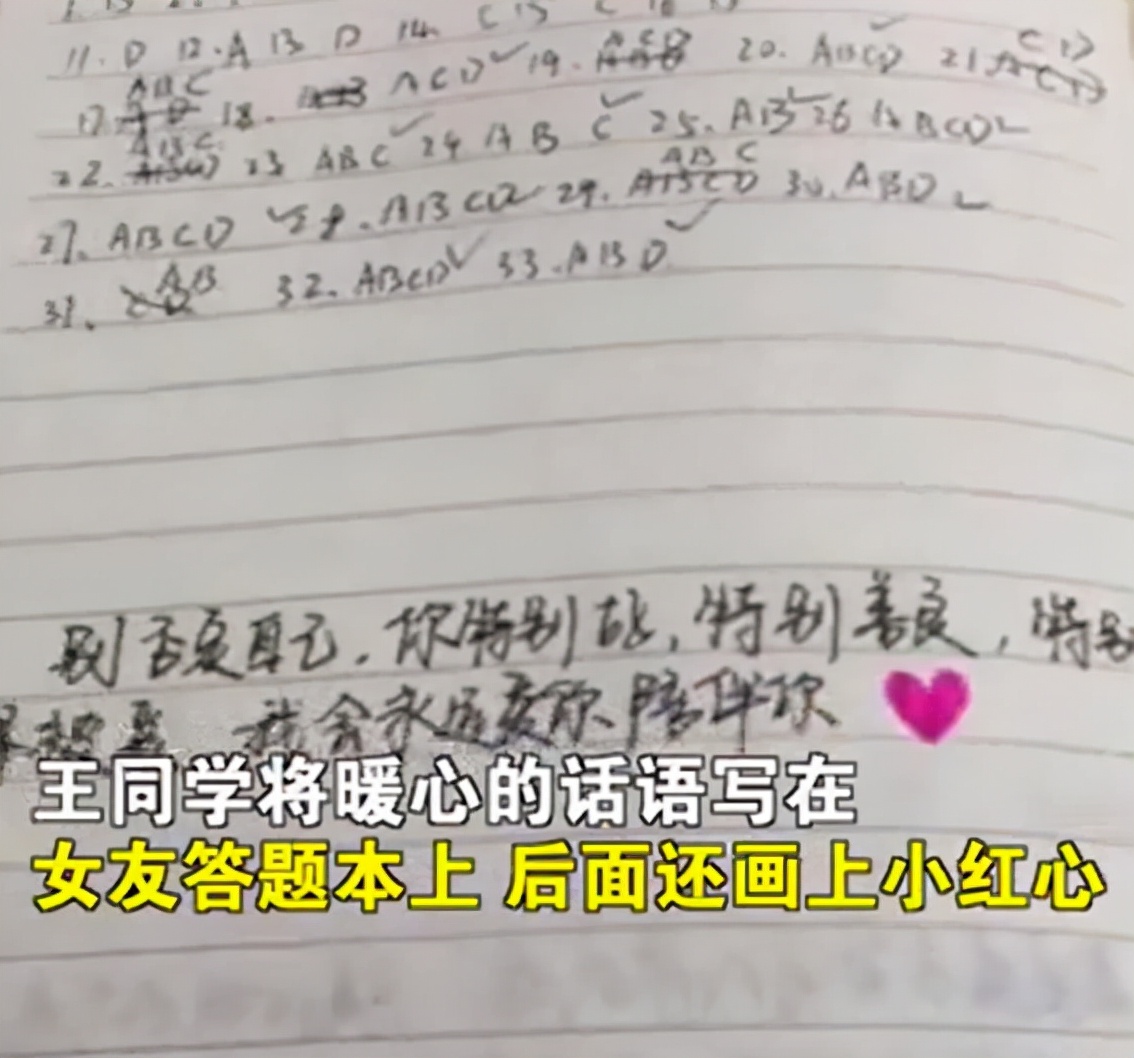 11. D 12. A 13 D 14. C 15 C 16 D
ABC ACD CD
17. 18. ACD 19. 20. ABCD 21.
ABC
22. 23 ABC 24 AB C 25. AB 26 ABCD
ABC
27. ABCD 28. ABCD 29. ABCD 30. ABD
AB
31. 32. ABCD 33. ABD
别否定自己. 你特别棒, 特别善良, 特别
我会永远爱你 陪伴你
王同学将暖心的话语写在
女友答题本上 后面还画上小红心